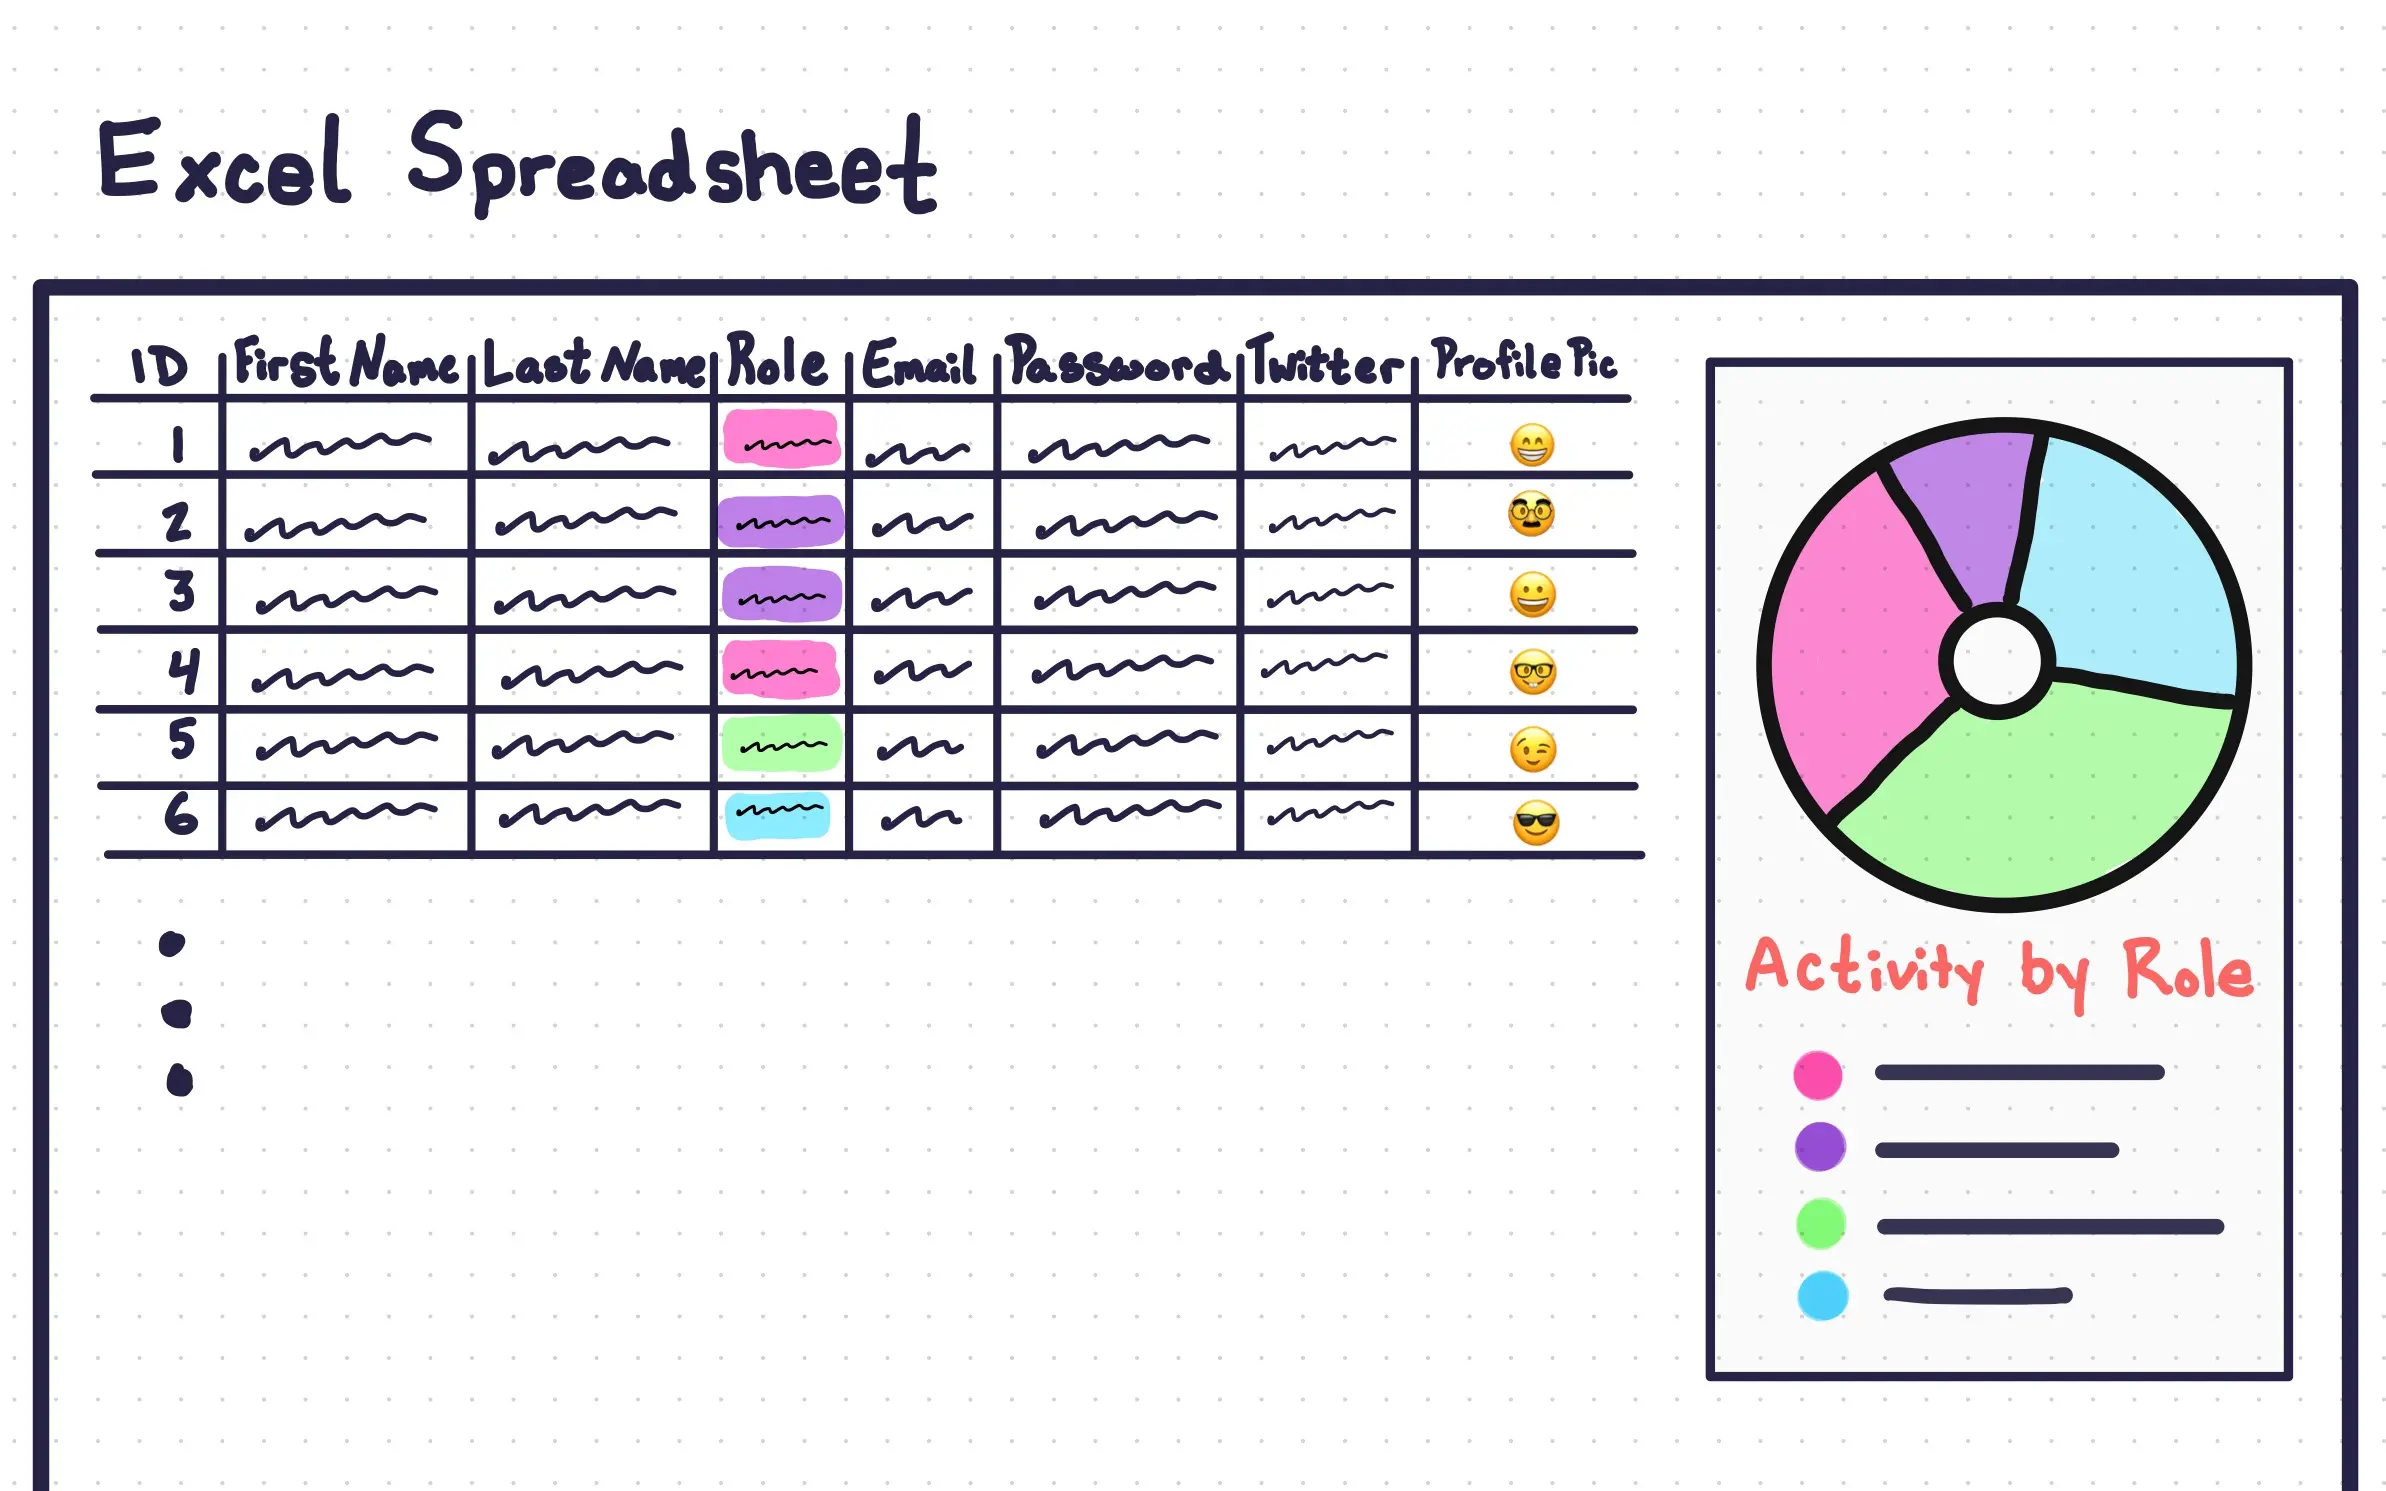 Excel Spreadsheet
ID First Name Last Name Role Email Password Twitter Profile Pic
1
2
3
4
5
6
Activity by Role